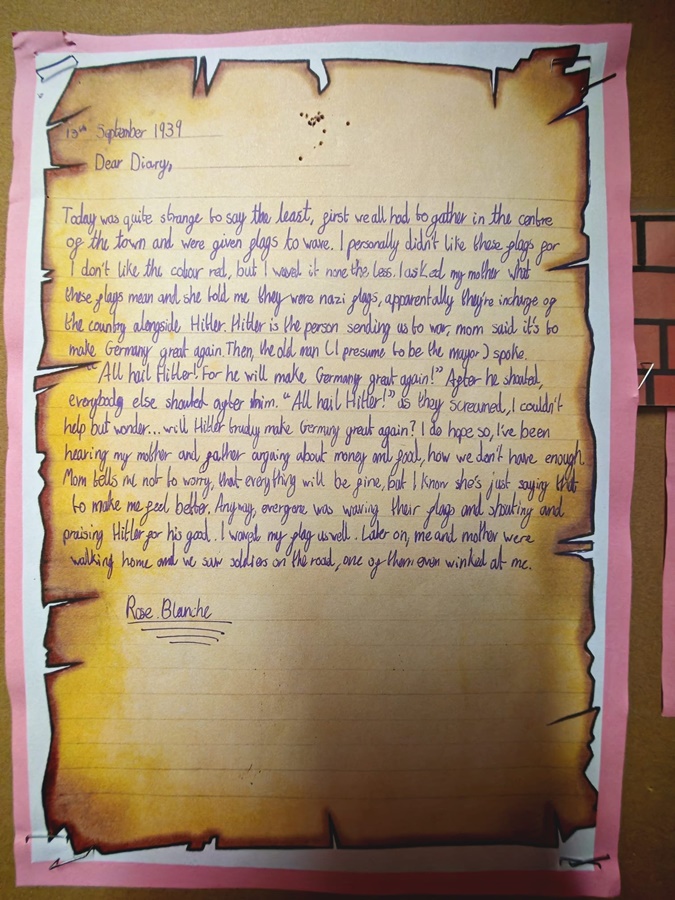 13th September 1939
Dear Diary,
Today was quite strange to say the least, first we all had to gather in the centre
of the town and were given flags to wave. I personally didn't like these flags for
I don't like the colour red, but I waved it none the less. I asked my mother what
these flags mean and she told me they were nazi flags, apparentally they're incharge of
the country alongside Hitler. Hitler is the person sending us to war, mom said it's to
make Germany great again. Then, the old man (I presume to be the mayor) spoke.
"All hail Hitler! For he will make Germany great again!" After he shouted,
everybody else shouted after him. "All hail Hitler!" as they screamed, I couldn't
help but wonder... will Hitler truly make Germany great again? I do hope so, I've been
hearing my mother and father arguing about money and food, how we don't have enough.
Mom tells me not to worry, that everything will be fine, but I know she's just saying that
to make me feel better. Anyway, everyone was waving their flags and shouting and
praising Hitler for his good. I waved my flag as well. Later on, me and mother were
walking home and we saw soldiers on the road, one of them even winked at me.
Rose Blanche